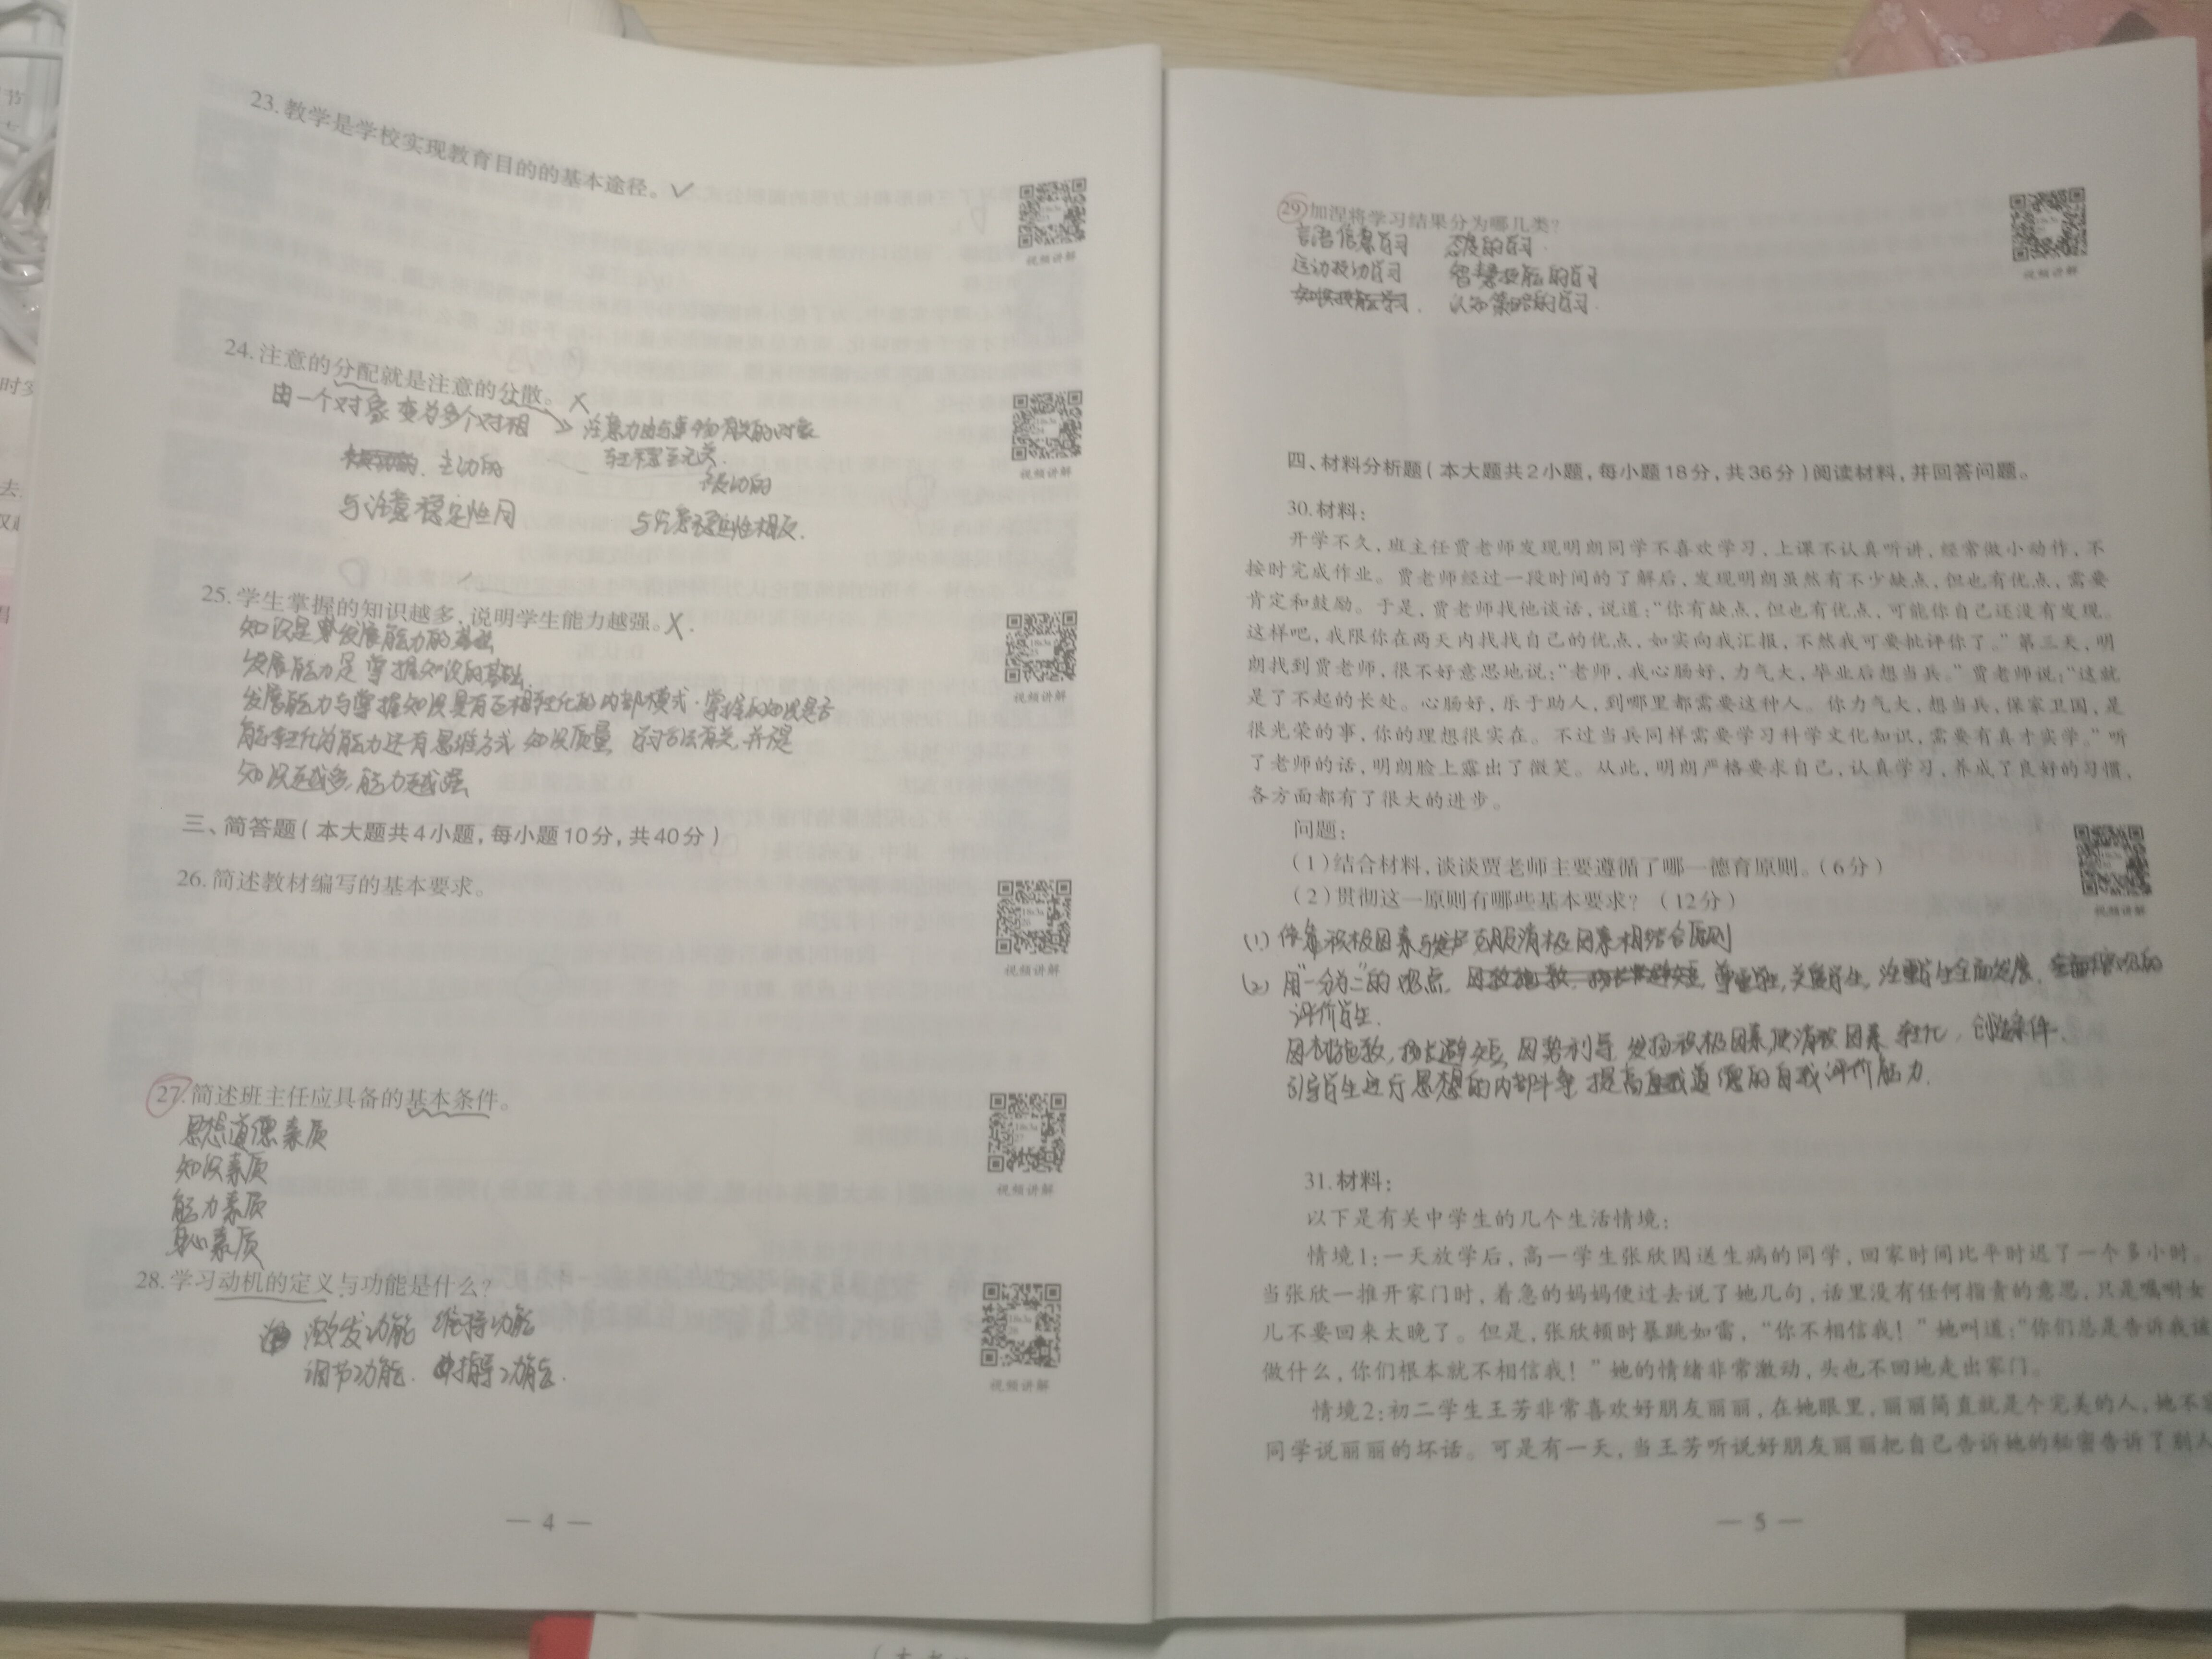 23.教学是学校实现教育目的的基本途径。✓
视频讲解
24.注意的分配就是注意的分散。×
由一个对象变为多个对相
注意力由与事物有关的对象
主动的
被动的
与注意稳定性同
视频讲解
25.学生掌握的知识越多，说明学生能力越强。×.
知识是发展能力的基础
发展能力是掌握知识的基础.
发展能力与掌握知识具有互相转化的内部模式.掌握的知识是否
能转化为能力还有思维方式 知识质量 学习方法有关,并
知识越多,能力越强
视频讲解
三、简答题(本大题共4小题,每小题10分,共40分)
26.简述教材编写的基本要求。
视频讲解
27.简述班主任应具备的基本条件。
思想道德素质
知识素质
能力素质
身心素质
视频讲解
28.学习动机的定义与功能是什么?
激发功能 维持功能
调节功能. 指导功能.
视频讲解
— 4 —
29.加涅将学习结果分为哪几类?
言语信息学习 态度的学习.
运动技动学习 智慧技能的学习
认知策略的学习.
视频讲解
四、材料分析题(本大题共2小题,每小题18分,共36分)阅读材料,并回答问题。
30.材料:
开学不久,班主任贾老师发现明朗同学不喜欢学习,上课不认真听讲,经常做小动作,不
按时完成作业。贾老师经过一段时间的了解后,发现明朗虽然有不少缺点,但也有优点,需要
肯定和鼓励。于是,贾老师找他谈话,说道:“你有缺点,但也有优点,可能你自己还没有发现。
这样吧,我限你在两天内找找自己的优点,如实向我汇报,不然我可要批评你了。”第三天,明
朗找到贾老师,很不好意思地说:“老师,我心肠好,力气大,毕业后想当兵。”贾老师说:“这就
是了不起的长处。心肠好,乐于助人,到哪里都需要这种人。你力气大,想当兵,保家卫国,是
很光荣的事,你的理想很实在。不过当兵同样需要学习科学文化知识,需要有真才实学。”听
了老师的话,明朗脸上露出了微笑。从此,明朗严格要求自己,认真学习,养成了良好的习惯,
各方面都有了很大的进步。
问题:
(1)结合材料,谈谈贾老师主要遵循了哪一德育原则。(6分)
(2)贯彻这一原则有哪些基本要求? (12分)
视频讲解
(1) 依靠积极因素与克服消极因素相结合原则
(2) 用“一分为二”的观点. 尊重学生,关爱学生,注重学生全面发展,
评价学生.
因材施教,扬长避短,因势利导 发扬积极因素,使消极因素转化,创造条件.
引导学生进行思想的内部斗争,提高道德的自我评价能力.
31.材料:
以下是有关中学生的几个生活情境:
情境1:一天放学后,高一学生张欣因送生病的同学,回家时间比平时迟了一个多小时。
当张欣一推开家门时,着急的妈妈便过去说了她几句,话里没有任何指责的意思,只是嘱咐女
儿不要回来太晚了。但是,张欣顿时暴跳如雷,“你不相信我!”她叫道:“你们总是告诉我该
做什么,你们根本就不相信我!”她的情绪非常激动,头也不回地走出家门。
情境2:初二学生王芳非常喜欢好朋友丽丽,在她眼里,丽丽简直就是个完美的人,她不容
同学说丽丽的坏话。可是有一天,当王芳听说好朋友丽丽把自己告诉她的秘密告诉了别人
— 5 —